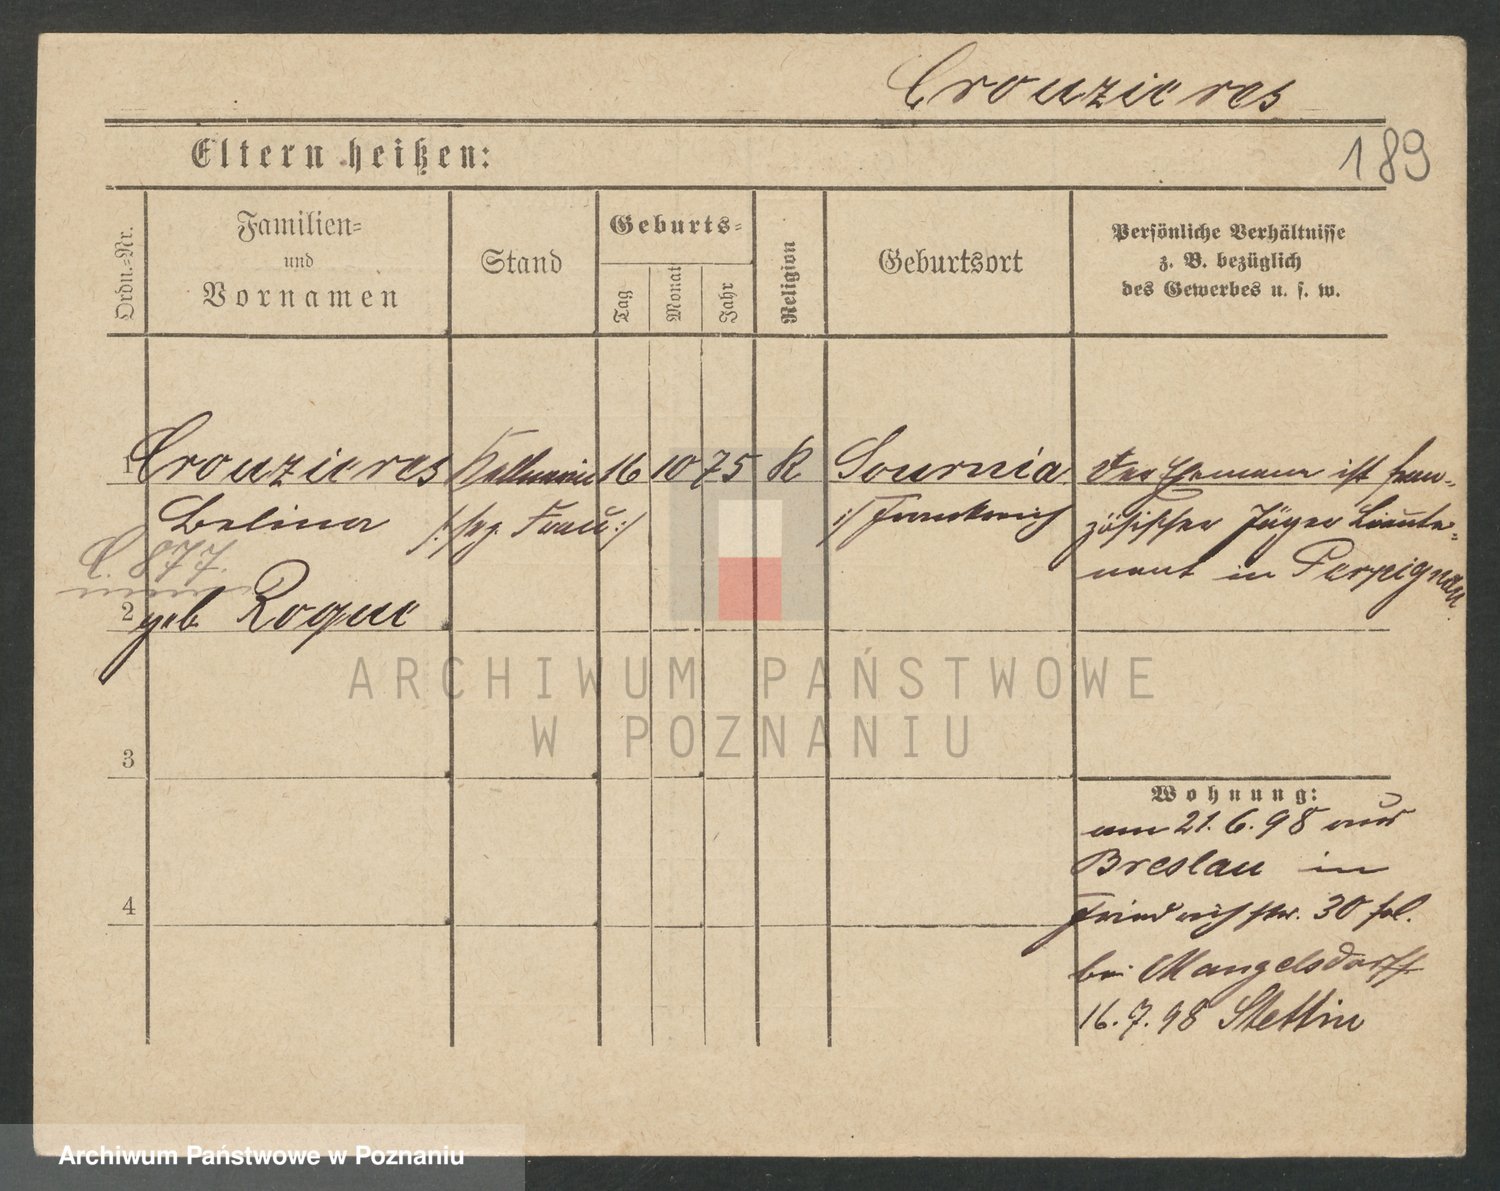 Crouzieres
189
Eltern heißen:
Ordn.-Nr.
Familien-
und
Vornamen
Stand
Geburts-
Tag
Monat
Jahr
Religion
Geburtsort
Persönliche Verhältnisse
z. B. bezüglich
des Gewerbes u. s. w.
1 Crouzieres Kellnerin 16 10 75 K Sournia Der Ehemann ist fran-
Belina /: sog. Frau :/ :/ Frankreich zösischer Jäger Lieute-
C. 877. nant in Perpignan
2 geb Roque
ARCHIWUM PAŃSTWOWE
W POZNANIU
3
Wohnung:
am 21.6.98 aus
Breslau in
4 Friedrichstr. 30
bei Mangelsdorff
16.7.98 Stettin
Archiwum Państwowe w Poznaniu